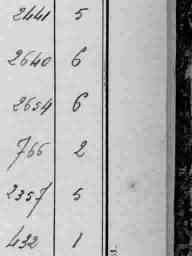 2441 5
2640 6
2654 6
766 2
2357 5
432 1